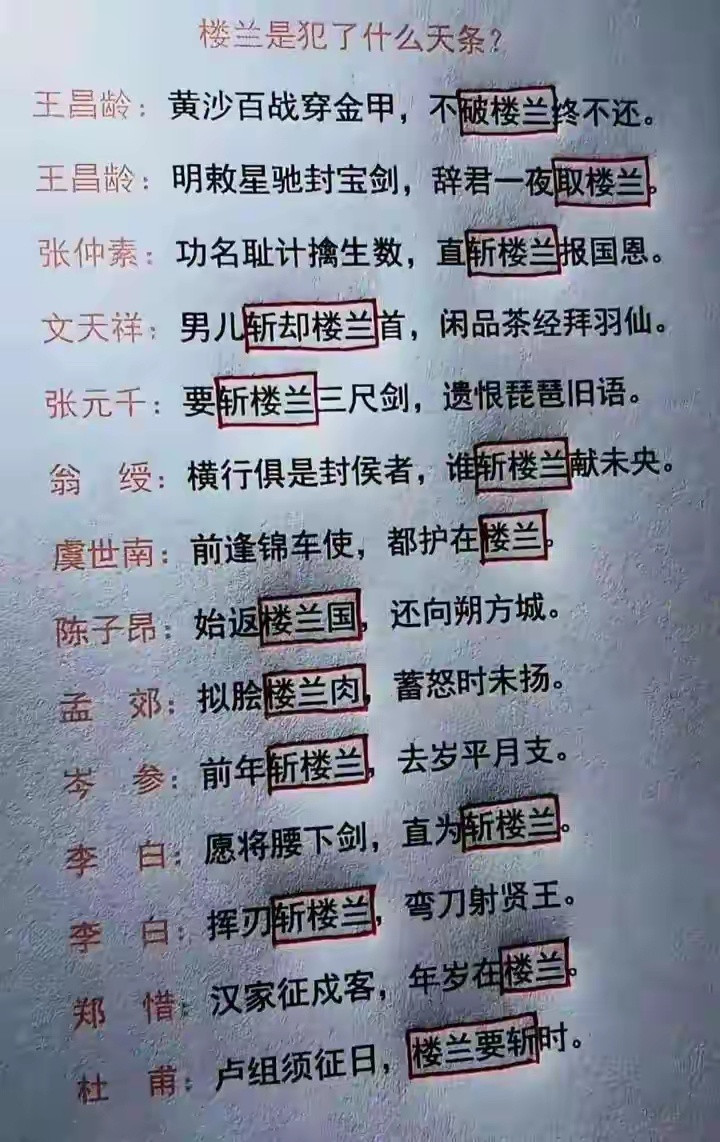 楼兰是犯了什么天条？
王昌龄：黄沙百战穿金甲，不破楼兰终不还。
王昌龄：明敕星驰封宝剑，辞君一夜取楼兰。
张仲素：功名耻计擒生数，直斩楼兰报国恩。
文天祥：男儿斩却楼兰首，闲品茶经拜羽仙。
张元千：要斩楼兰三尺剑，遗恨琵琶旧语。
翁　绶：横行俱是封侯者，谁斩楼兰献未央。
虞世南：前逢锦车使，都护在楼兰。
陈子昂：始返楼兰国，还向朔方城。
孟　郊：拟脍楼兰肉，蓄怒时未扬。
岑　参：前年斩楼兰，去岁平月支。
李　白：愿将腰下剑，直为斩楼兰。
李　白：挥刃斩楼兰，弯刀射贤王。
郑　惜：汉家征戍客，年岁在楼兰。
杜　甫：卢组须征日，楼兰要斩时。